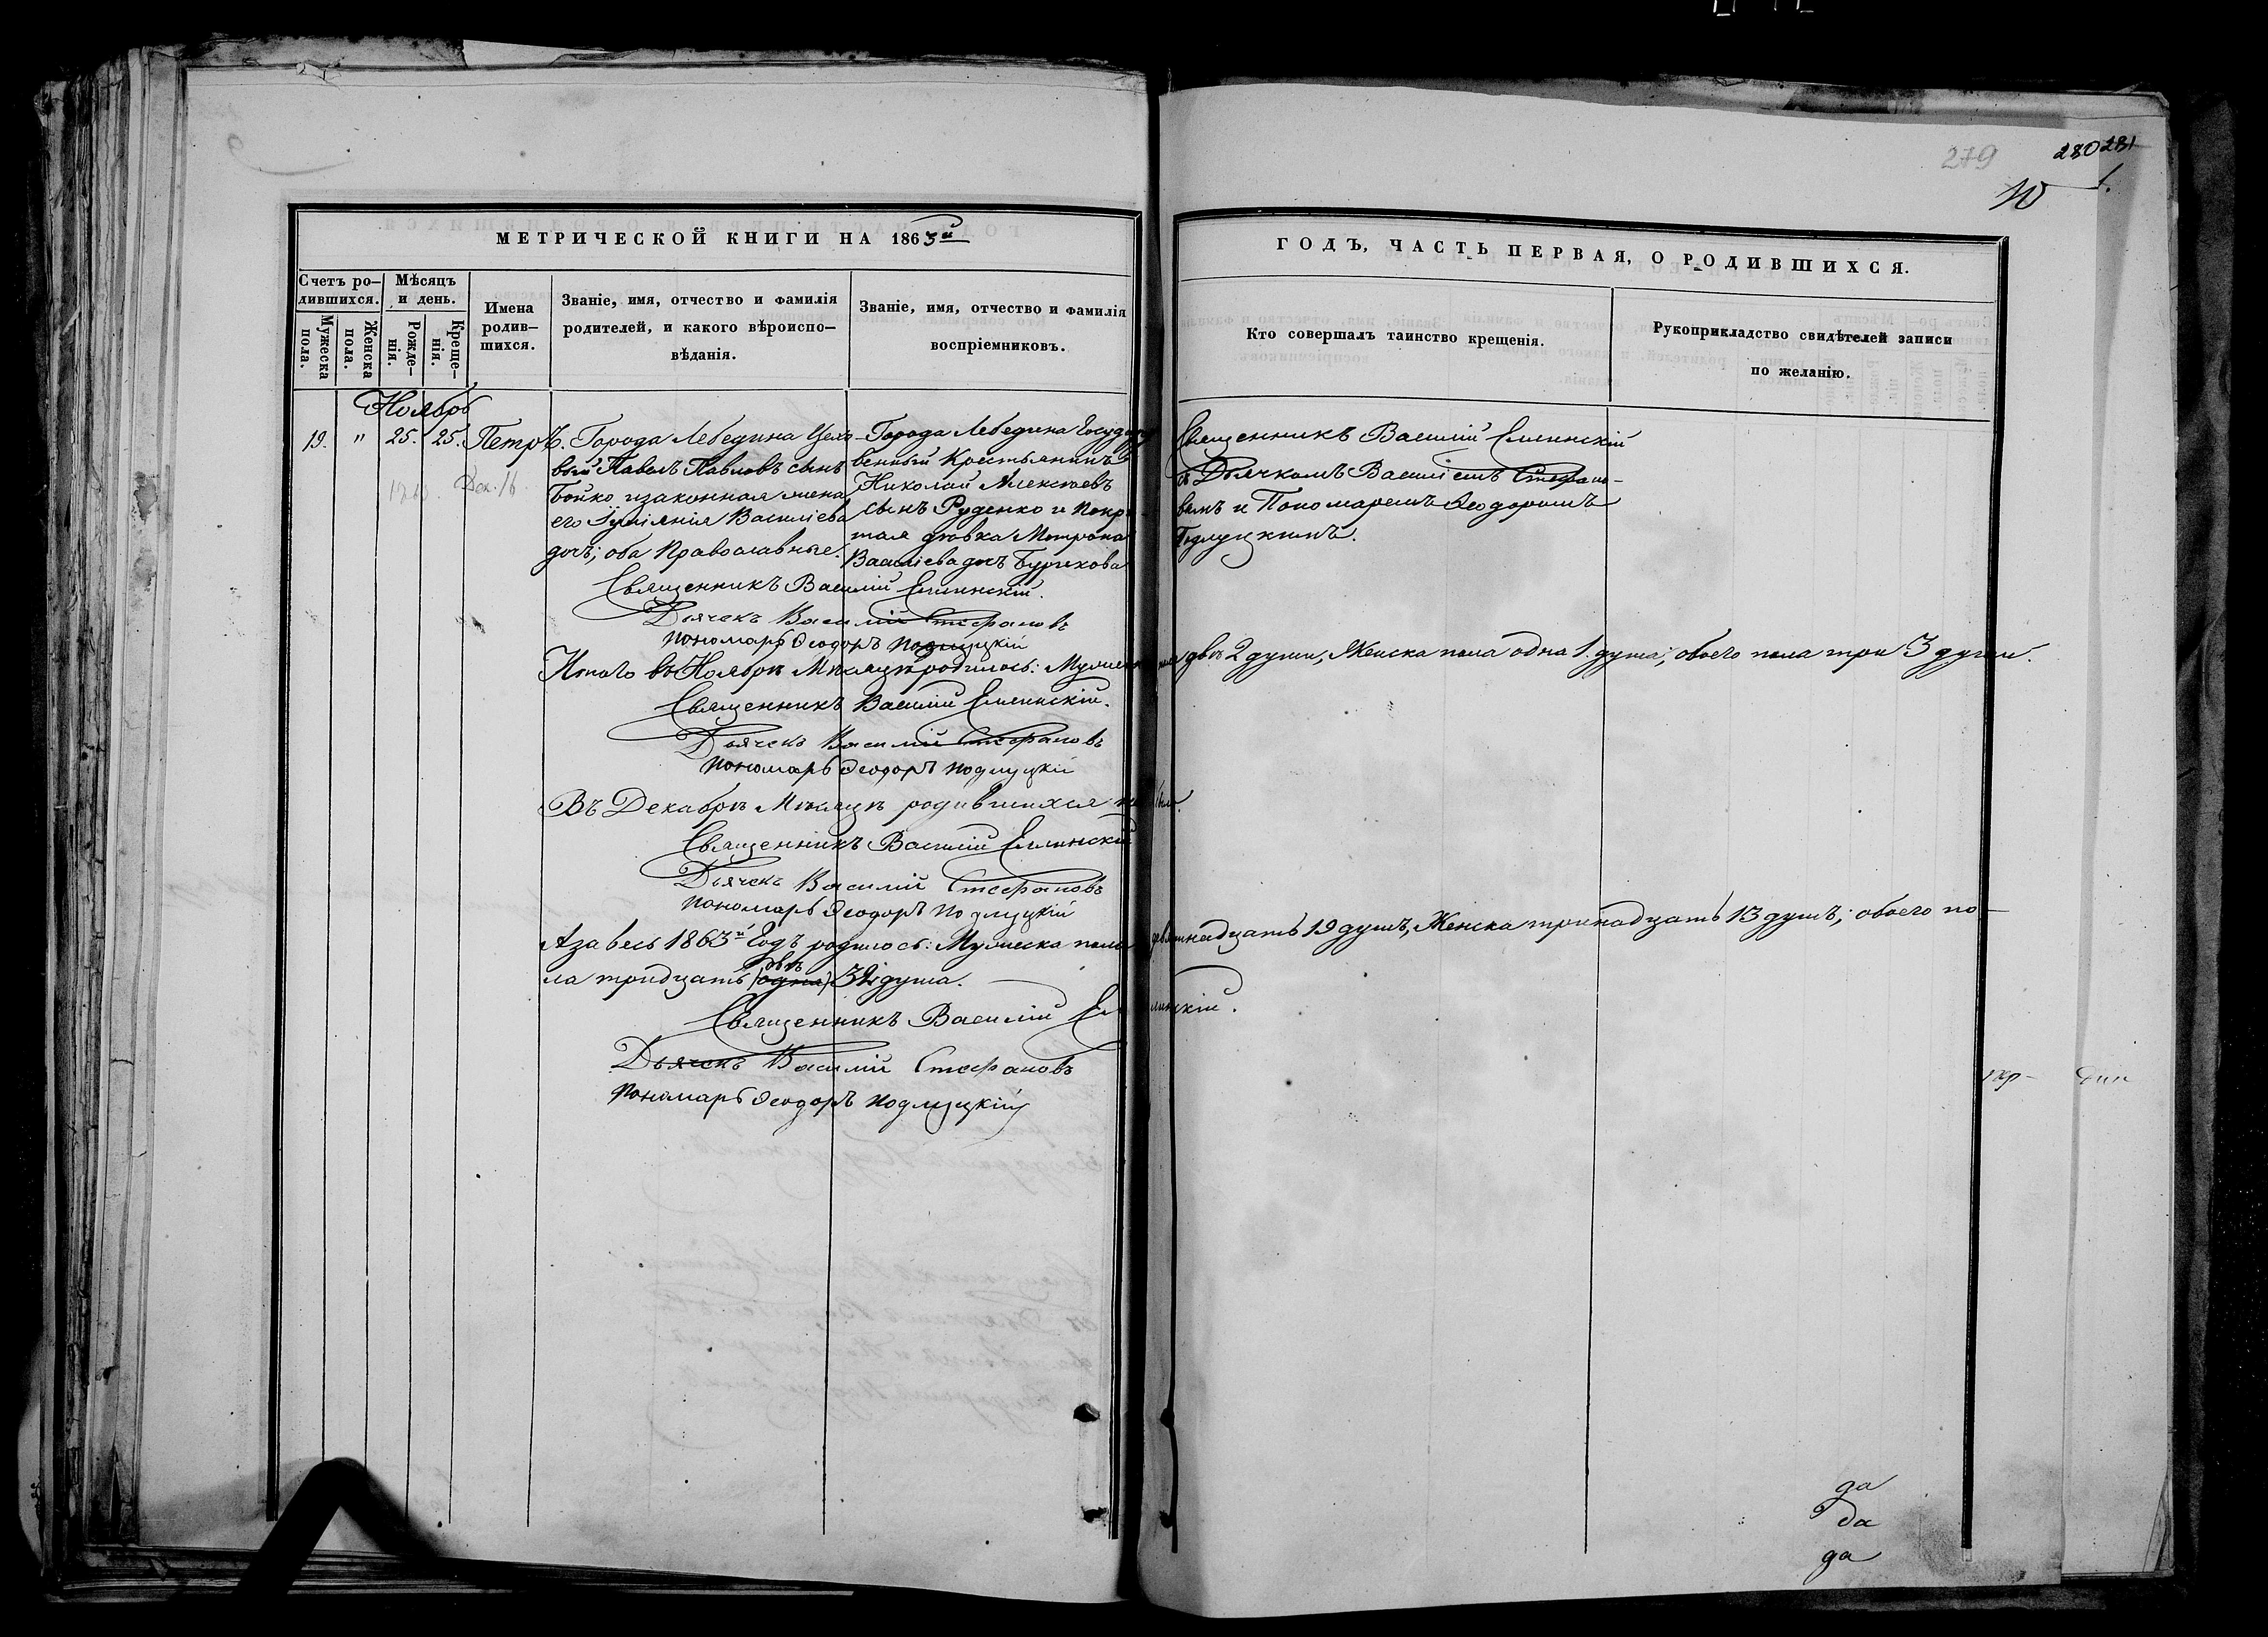 279 280 281
10
МЕТРИЧЕСКОЙ КНИГИ НА 1863й
ГОДЪ, ЧАСТЬ ПЕРВАЯ, О РОДИВШИХСЯ.
Счетъ ро-
дившихся.
Мужеска
пола.
Женска
пола.
Мѣсяцъ
и день.
Рожде-
нія.
Креще-
нія.
Имена
родив-
шихся.
Званіе, имя, отчество и фамилія
родителей, и какого вѣроиспо-
вѣданія.
Званіе, имя, отчество и фамилія
воспріемниковъ.
Кто совершалъ таинство крещенія.
Рукоприкладство свидѣтелей записи
по желанію.
Ноябрь
19. " 25. 25. Петръ.
Дек. 16.
Города Лебедина Цехо-
вый Павелъ Павловъ сынъ
Бойко и законная жена
его Василіева
дочь; оба Православные.
Города Лебедина Государ
венный Крестьянинъ
Николай Алексѣевъ
сынъ Руденко и
дѣвка Матрона
Василіева дочь
Священникъ Василій Сминскій
съ Дьячкомъ Василіемъ Стефано-
вымъ и Пономаремъ Ѳеодоромъ
Подлуцкимъ.
Священникъ Василій
Дьячекъ Василій Стефановъ
Пономарь Ѳеодоръ Подлуцкій
Итого въ Ноябрѣ Мѣсяцѣ родилось: Мужеска пола двѣ 2 души, Женска пола одна 1. душа; обоего пола три 3 души.
Священникъ Василій
Дьячекъ Василій Стефановъ
Пономарь Ѳеодоръ Подлуцкій
Въ Декабрѣ Мѣсяцѣ родившихся не было.
Священникъ Василій
Дьячекъ Василій Стефановъ
Пономарь Ѳеодоръ Подлуцкій
А за весь 1863й Годъ родилось: Мужеска пола девятнадцать 19 душъ, Женска тринадцать 13 душъ; обоего по-
ла тридцать (одна) двѣ 32 душа.
Священникъ Василій
Дьячекъ Василій Стефановъ
Пономарь Ѳеодоръ Подлуцкій
да
да
да